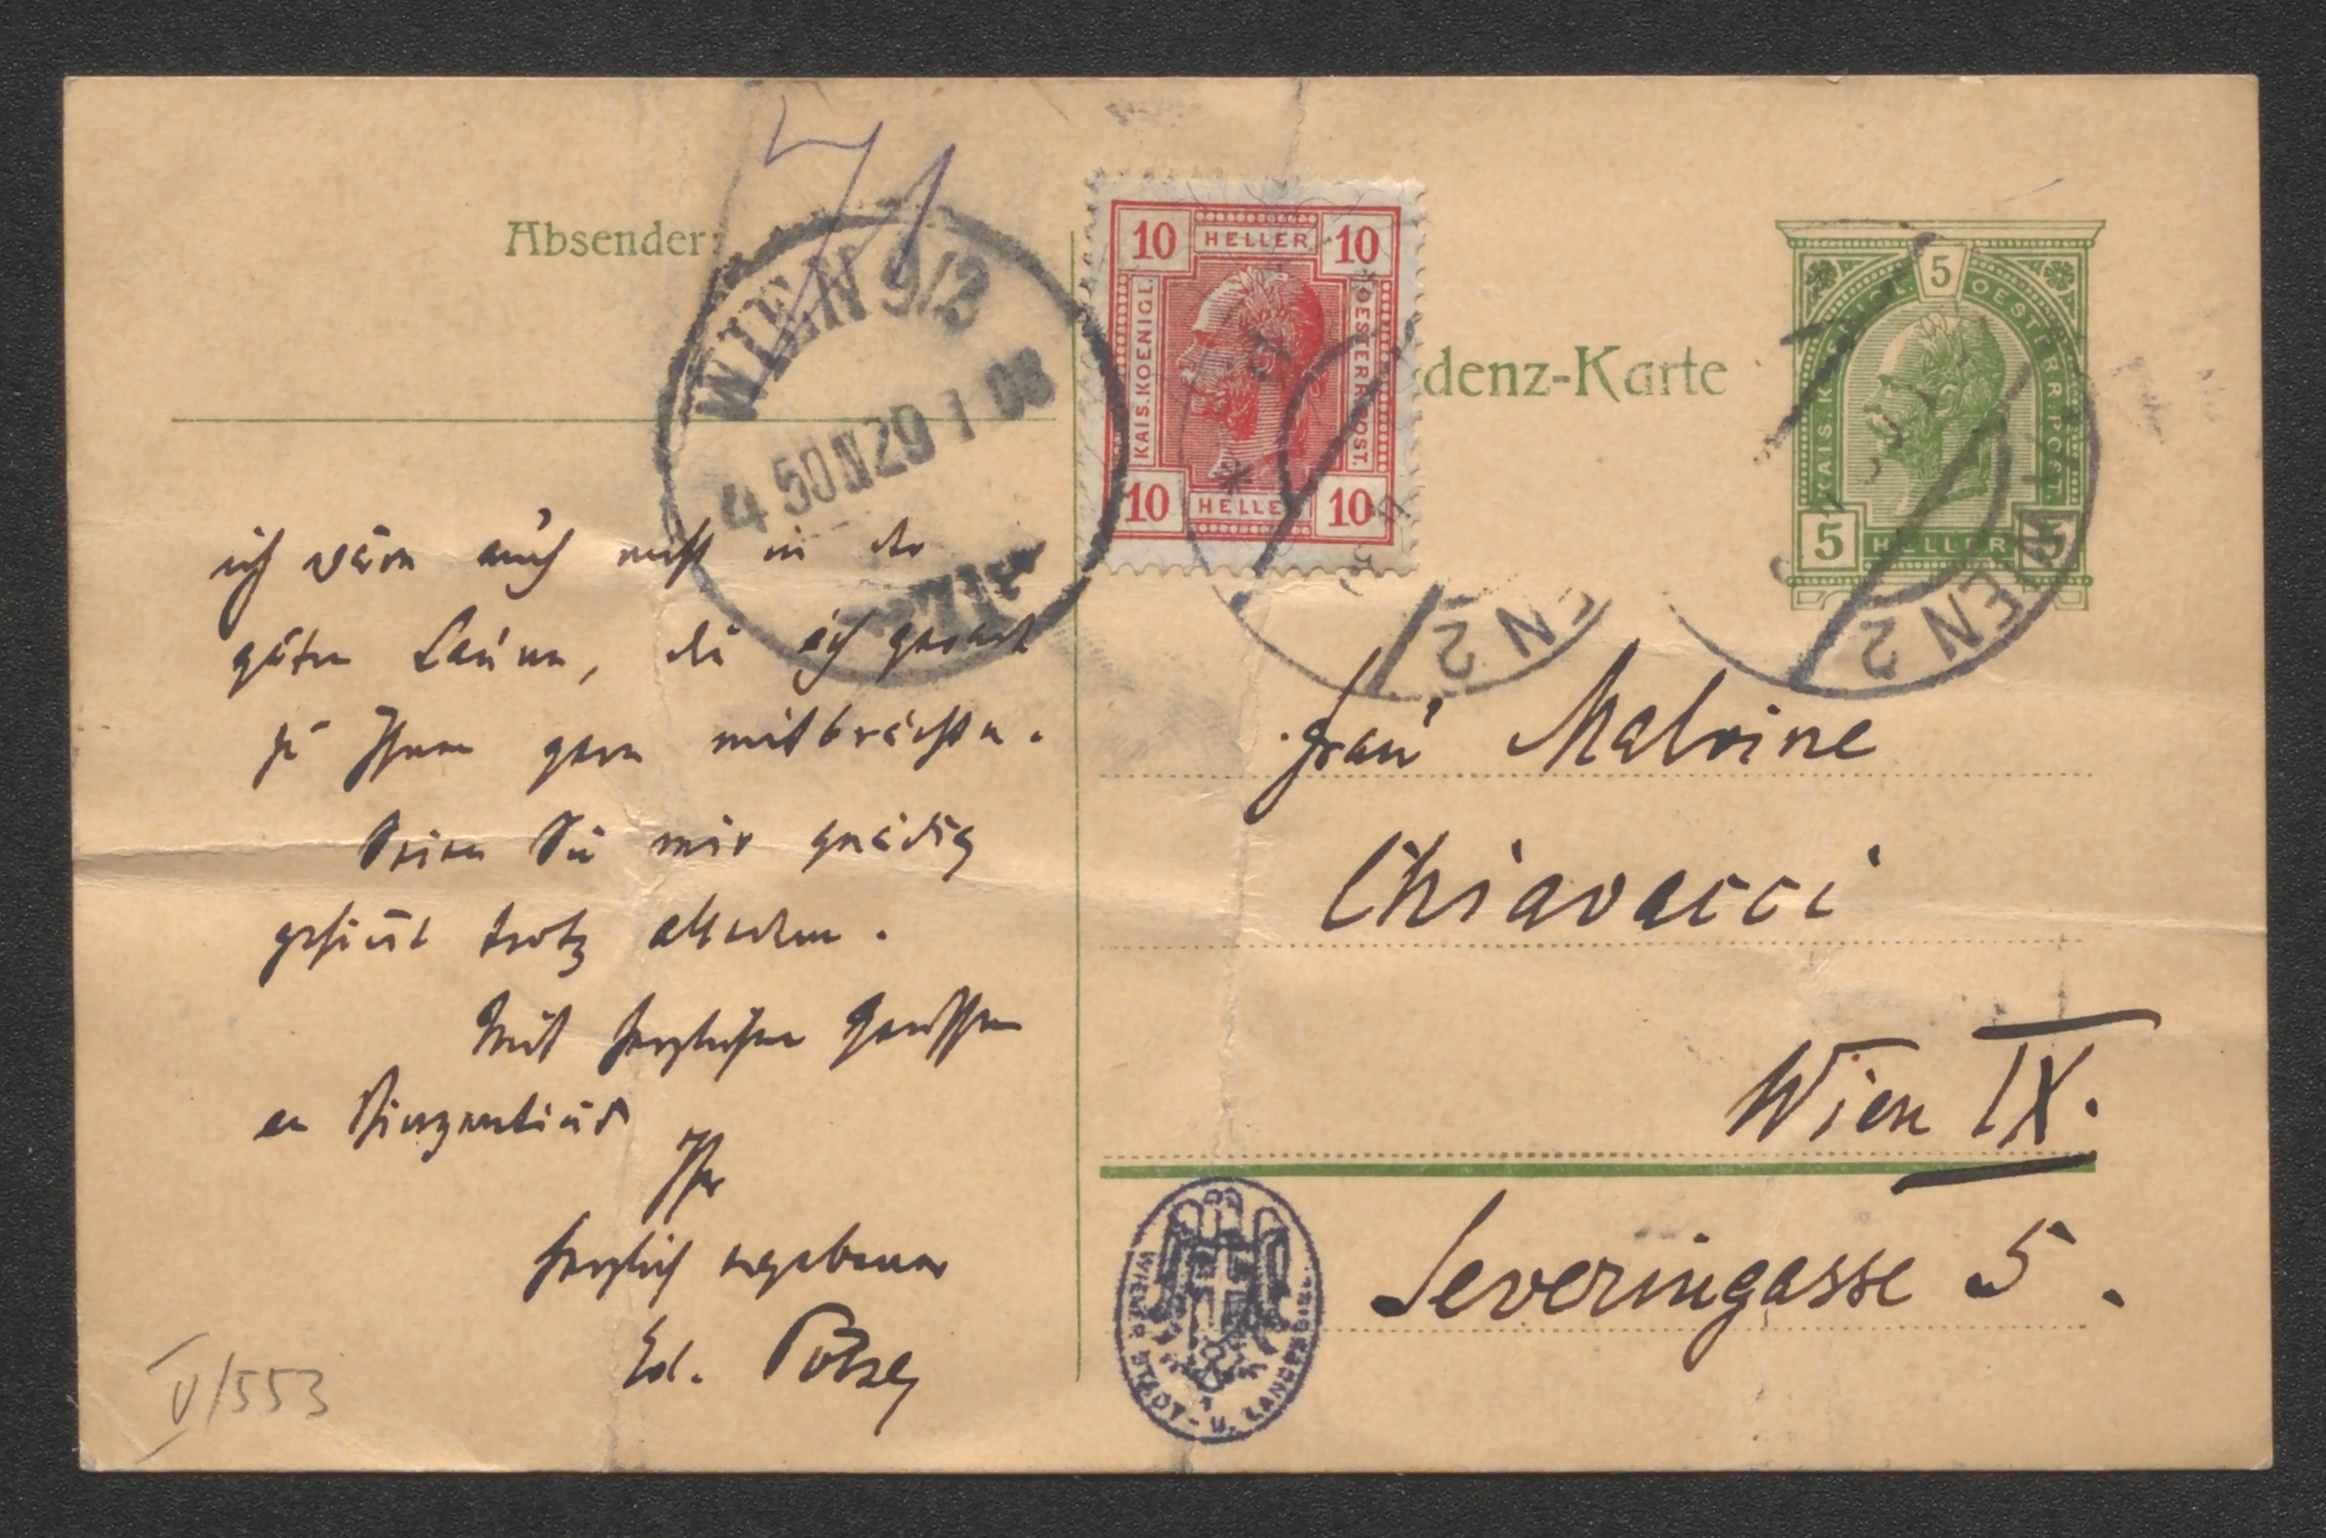 Absender:
WIEN 9/2
4 50 N 29 I 08
ich wäre auch nicht in der
guten Laune, die ich gerade
zu Ihnen gern mitbrächte.
Seien Sie mir gnädig
gesinnt trotz alledem.
Mit herzlichen Grüssen
an
Ihr
herzlich ergebener
Ed. Pötzl
V/553
10 HELLER 10
KAIS. KOENIGL.
OESTERR. POST.
10 HELLER 10
denz-Karte
5
KAIS. KOENIGL. OESTERR. POST.
5 HELLER 5
EN 2
WIEN 2
Frau Malvine
Chiavacci
Wien IX.
Severingasse 5.
WIENER STADT- U. LANDESBIBL.